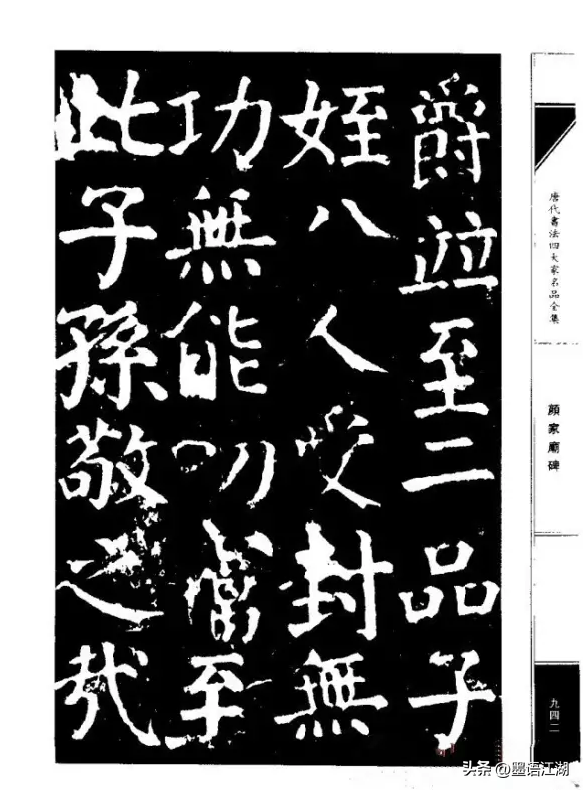 爵竝至二品子
姪八人受封無
功無能叨竊至
此子孫敬之哉
唐代書法四大家名品全集
顔家廟碑
九四二
头条 @墨语江湖